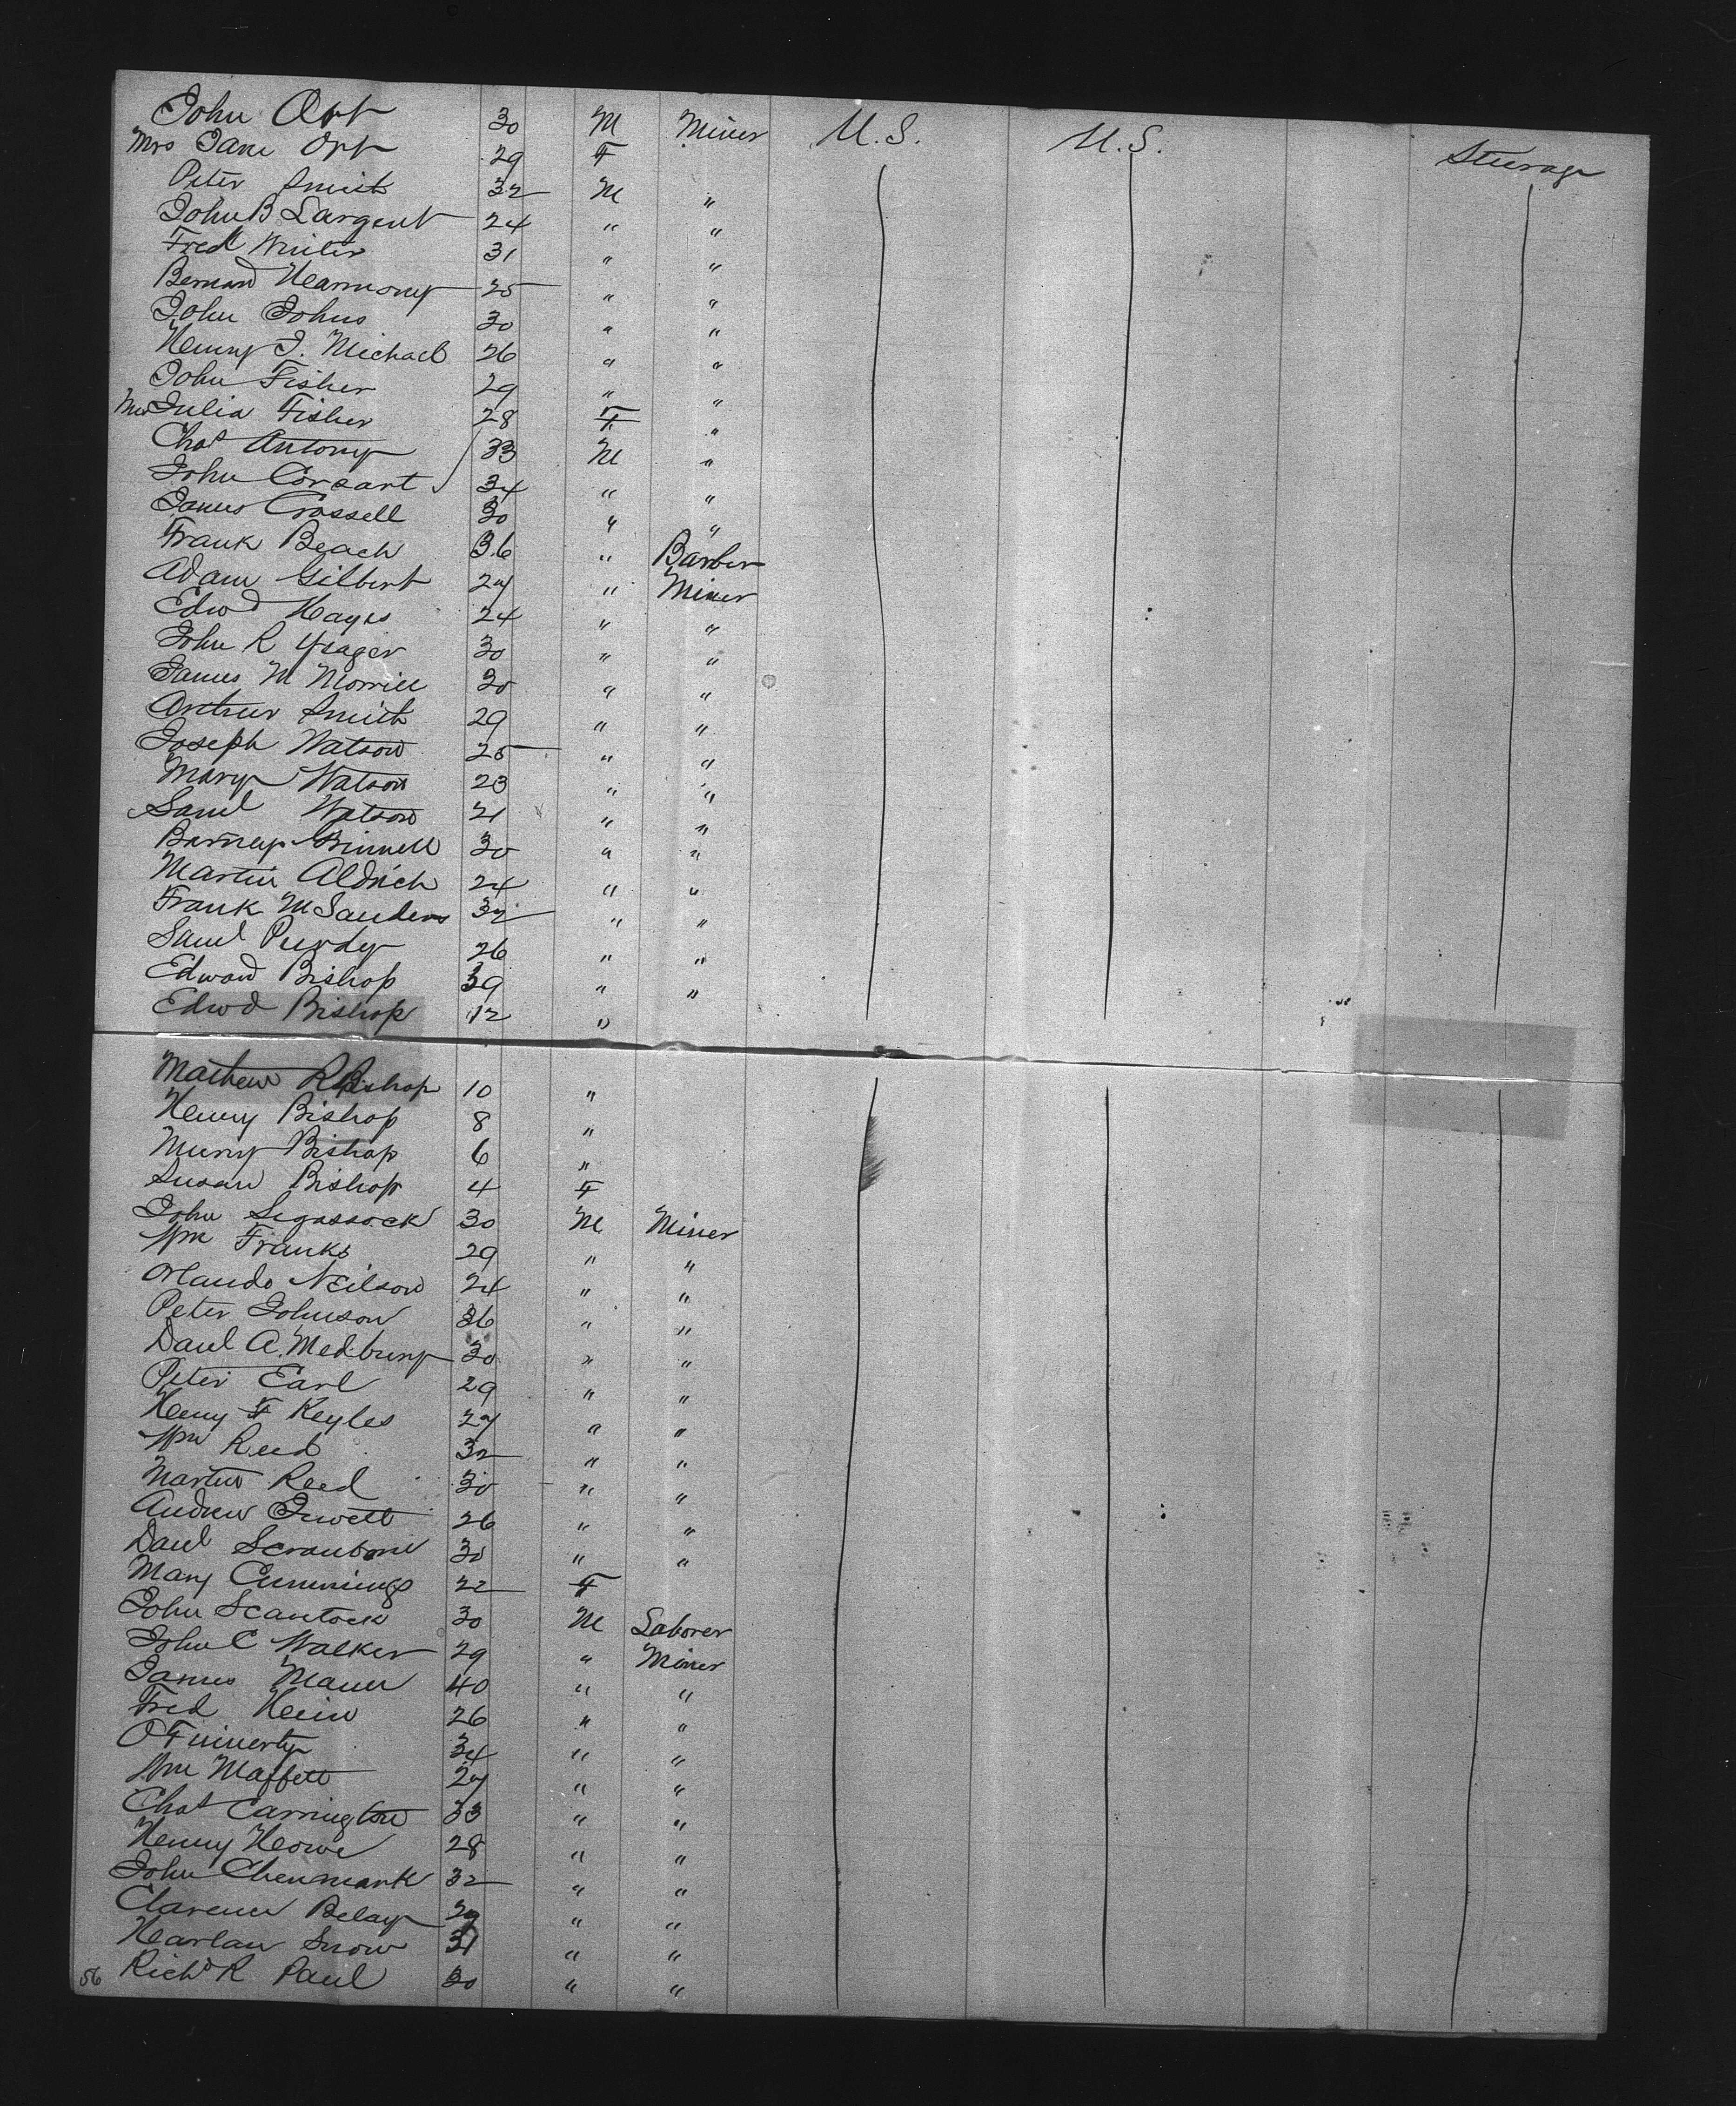 John Orr 30 M Miner U.S. U.S. Steerage
Mrs Jane Orr 29 F
Peter Smith 32 M "
John B Largent 24 " "
Fred Winter 31 " "
Bernard Hearmony 25 " "
John Johns 30 " "
Henry J. Michael 26 " "
John Fisher 29 " "
Mrs Julia Fisher 28 F "
Chas Antony 33 M "
John Corsart 34 " "
James Crossell 30 " "
Frank Beach 36 " Barber
Adam Gilbert 27 " Miner
Edwd Hayes 24 " "
John R Yeager 30 " "
James M Morrill 30 " "
Arthur Smith 29 " "
Joseph Watson 25 " "
Mary Watson 23 " "
Saml Watson 21 " "
Barney Grinnell 30 " "
Martin Aldrich 24 " "
Frank M Sanders 32 " "
Saml Purdy 26 " "
Edward Bishop 39 " "
Edwd Bishop 12 "
Mathew R Bishop 10 "
Henry Bishop 8 "
Bishop 6 "
Susan Bishop 4 F
John Segassock 30 M Miner
Wm Franks 29 " "
Orlando Neilson 24 " "
Peter Johnson 36 " "
Danl A. Medbury 30 " "
Peter Earl 29 " "
Henry F Keyles 27 " "
Wm Reed 32 " "
Martin Reed 30 " "
Andrew Jewett 26 " "
Danl Scrantom 30 " "
Mary Cummings 22 F
John Scantock 30 M Laborer
John C Walker 29 " Miner
James Mann 40 " "
Fred Hein 26 " "
O Finnerty 34 " "
Wm Maffett 27 " "
Chas Carrington 33 " "
Henry Howe 28 " "
John Chenmark 32 " "
Clarence Belay 29 " "
Harlan Snow 31 " "
56 Richd R Paul 30 " "